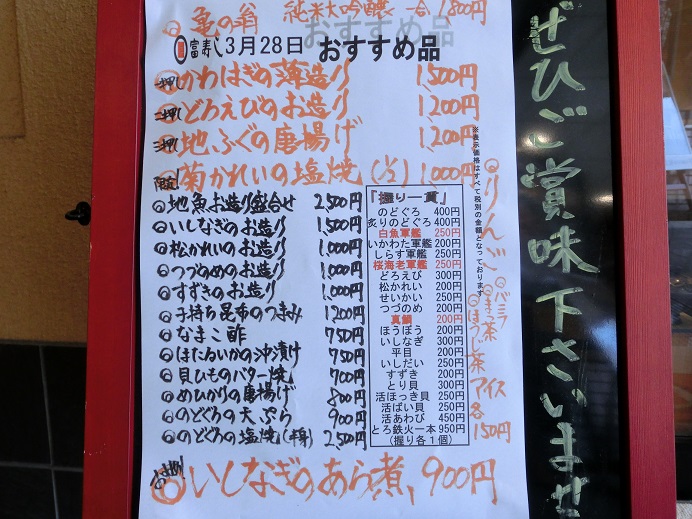 亀の翁 純米大吟醸 一合 1,800円
富寿し 3月28日 おすすめ品
一押 かわはぎの薄造り 1,500円
二押 どろえびのお造り 1,200円
三押 地ふぐの唐揚げ 1,200円
限定! 菊かれいの塩焼 (1/2) 1,000円
◎地魚お造り盛合せ 2,500円
◎いしなぎのお造り 1,500円
◎松かれいのお造り 1,000円
◎つづのめのお造り 1,000円
◎すずきのお造り 1,000円
◎子持ち昆布のつまみ 1,200円
◎なまこ酢 750円
◎ほたるいかの沖漬け 750円
◎貝ひものバター焼 700円
◎めひかりの唐揚げ 800円
◎のどぐろの天ぷら 900円
◎のどぐろの塩焼(半身) 2,500円
◎いしなぎのあら煮, 900円
『握り一貫』
のどぐろ 400円
炙りのどぐろ 400円
白魚軍艦 250円
いかわた軍艦 200円
しらす軍艦 250円
桜海老軍艦 250円
どろえび 300円
松かれい 200円
せいかい 250円
つづのめ 200円
真鯛 200円
ほうぼう 200円
いしなぎ 300円
平目 200円
いしだい 250円
すずき 200円
とり貝 300円
活ほっき貝 250円
活ばい貝 250円
活あわび 450円
とろ鉄火一本 950円
(握り各1個)
※表示価格はすべて税別の金額となっております
◎りんご
◎バニラ
◎ごま茶
◎ほうじ茶
アイス
各
150円
ぜひご賞味下さいませ